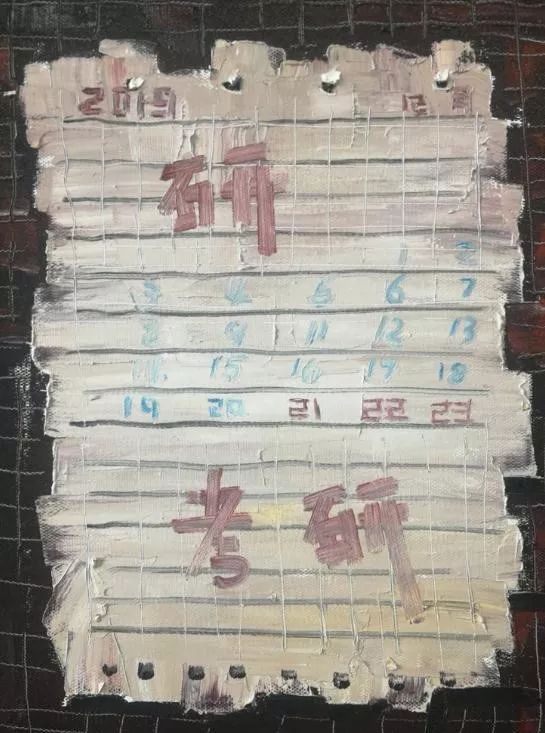 2019
研
1 2
3 4 5 6 7
8 9 11 12 13
14 15 16 17 18
19 20 21 22 23
考研